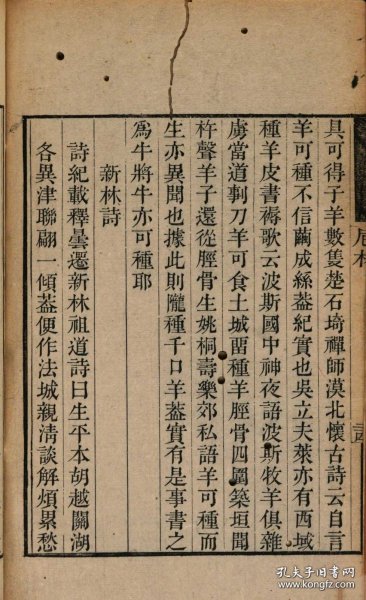 具可得子羊數隻楚石埼禪師漠北懷古詩云自言
羊可種不信繭成絲葢紀實也吳立夫萊亦有西域
種羊皮書褥歌云波斯國中神夜語波斯牧羊俱雜
虜當道刲刀羊可食土城畱種羊脛骨四圍築垣聞
杵聲羊子還從脛骨生姚桐壽樂郊私語羊可種而
生亦異聞也據此則隴種千口羊葢實有是事書之
爲牛將牛亦可種耶
新林詩
詩紀載釋曇遷新林祖道詩曰生平本胡越關湖
各異津聯翩一傾葢便作法城親清談解煩累愁
孔夫子旧书网
www.kongfz.com